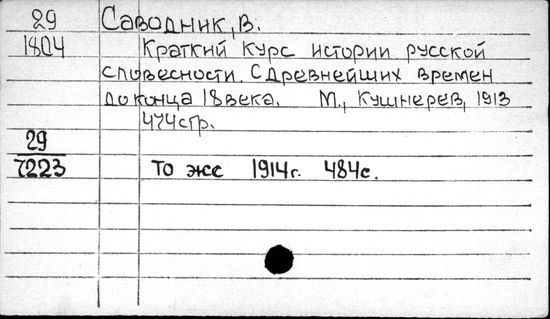 29 Саводник, В.
1804 Краткий курс истории русской
словесности. С древнейших времен
до конца 18 века. М., Кушнерев, 1913
474стр.
29
7223 То же 1914г. 484с.